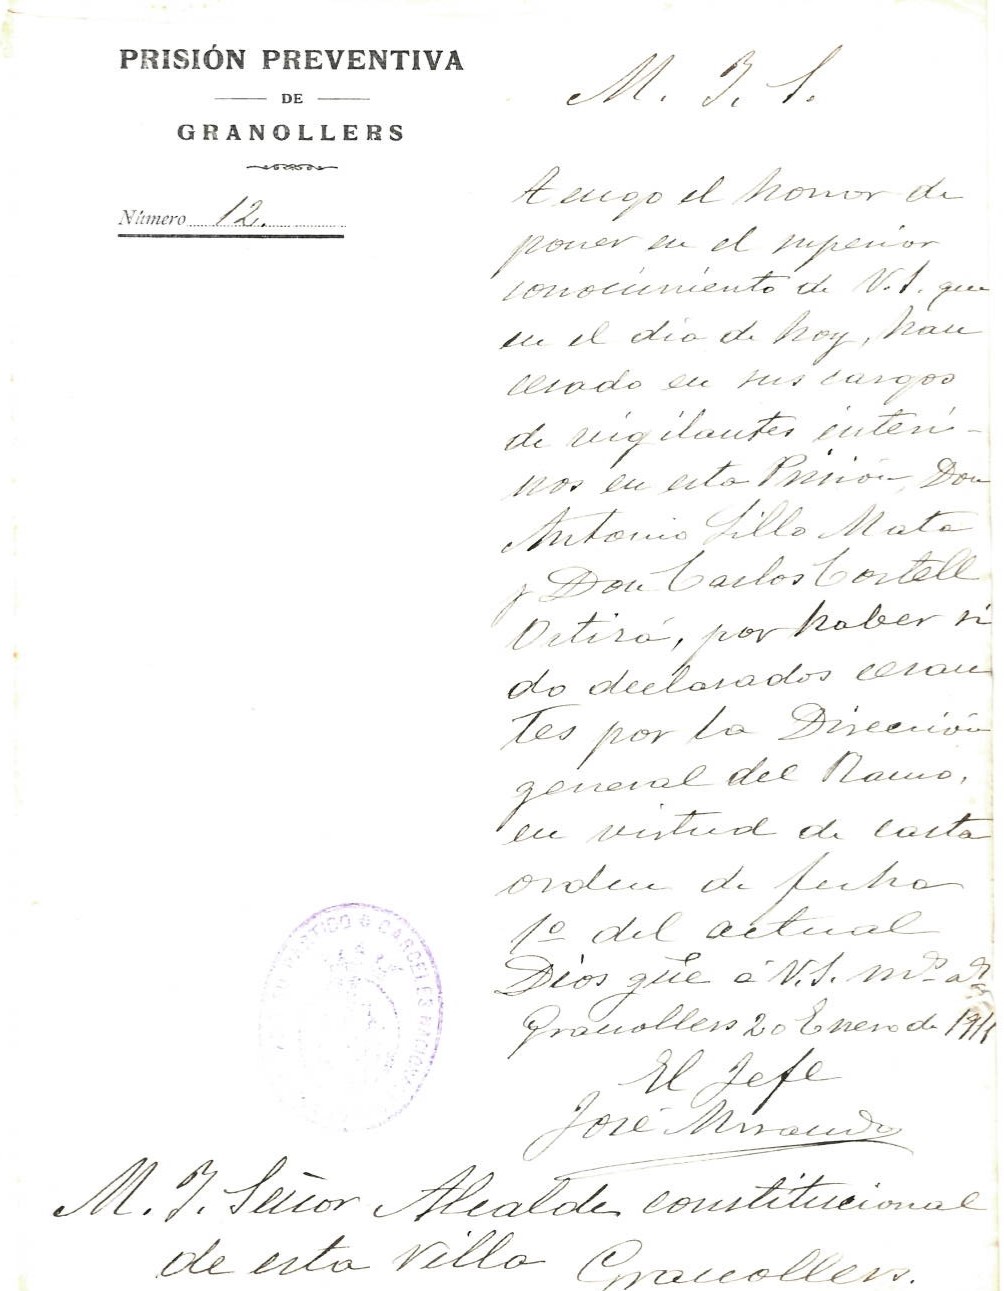 PRISIÓN PREVENTIVA
DE
GRANOLLERS
Número 12.
M. I. S.
Tengo el honor de
poner en el superior
conocimiento de V.S. que
en el día de hoy, han
cesado en sus cargos
de vigilantes interi-
nos en esta Prisión, Don
Antonio Lillo Mata
y Don Carlos Cortell
por haber si
do declarados cesan
tes por la Dirección
general del Ramo,
en virtud de carta
orden de fecha
1º del actual
Dios gūe á V.S. mˢ aˢ
Granollers 20 Enero de
El Jefe
José Miranda
M. I. Señor Alcalde constitucional
de esta villa Granollers.
CARCELES NACIONAL